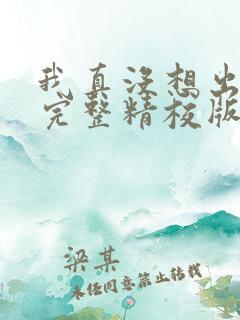 我真没想出
完整精校版
梁某
未经同意禁止转载